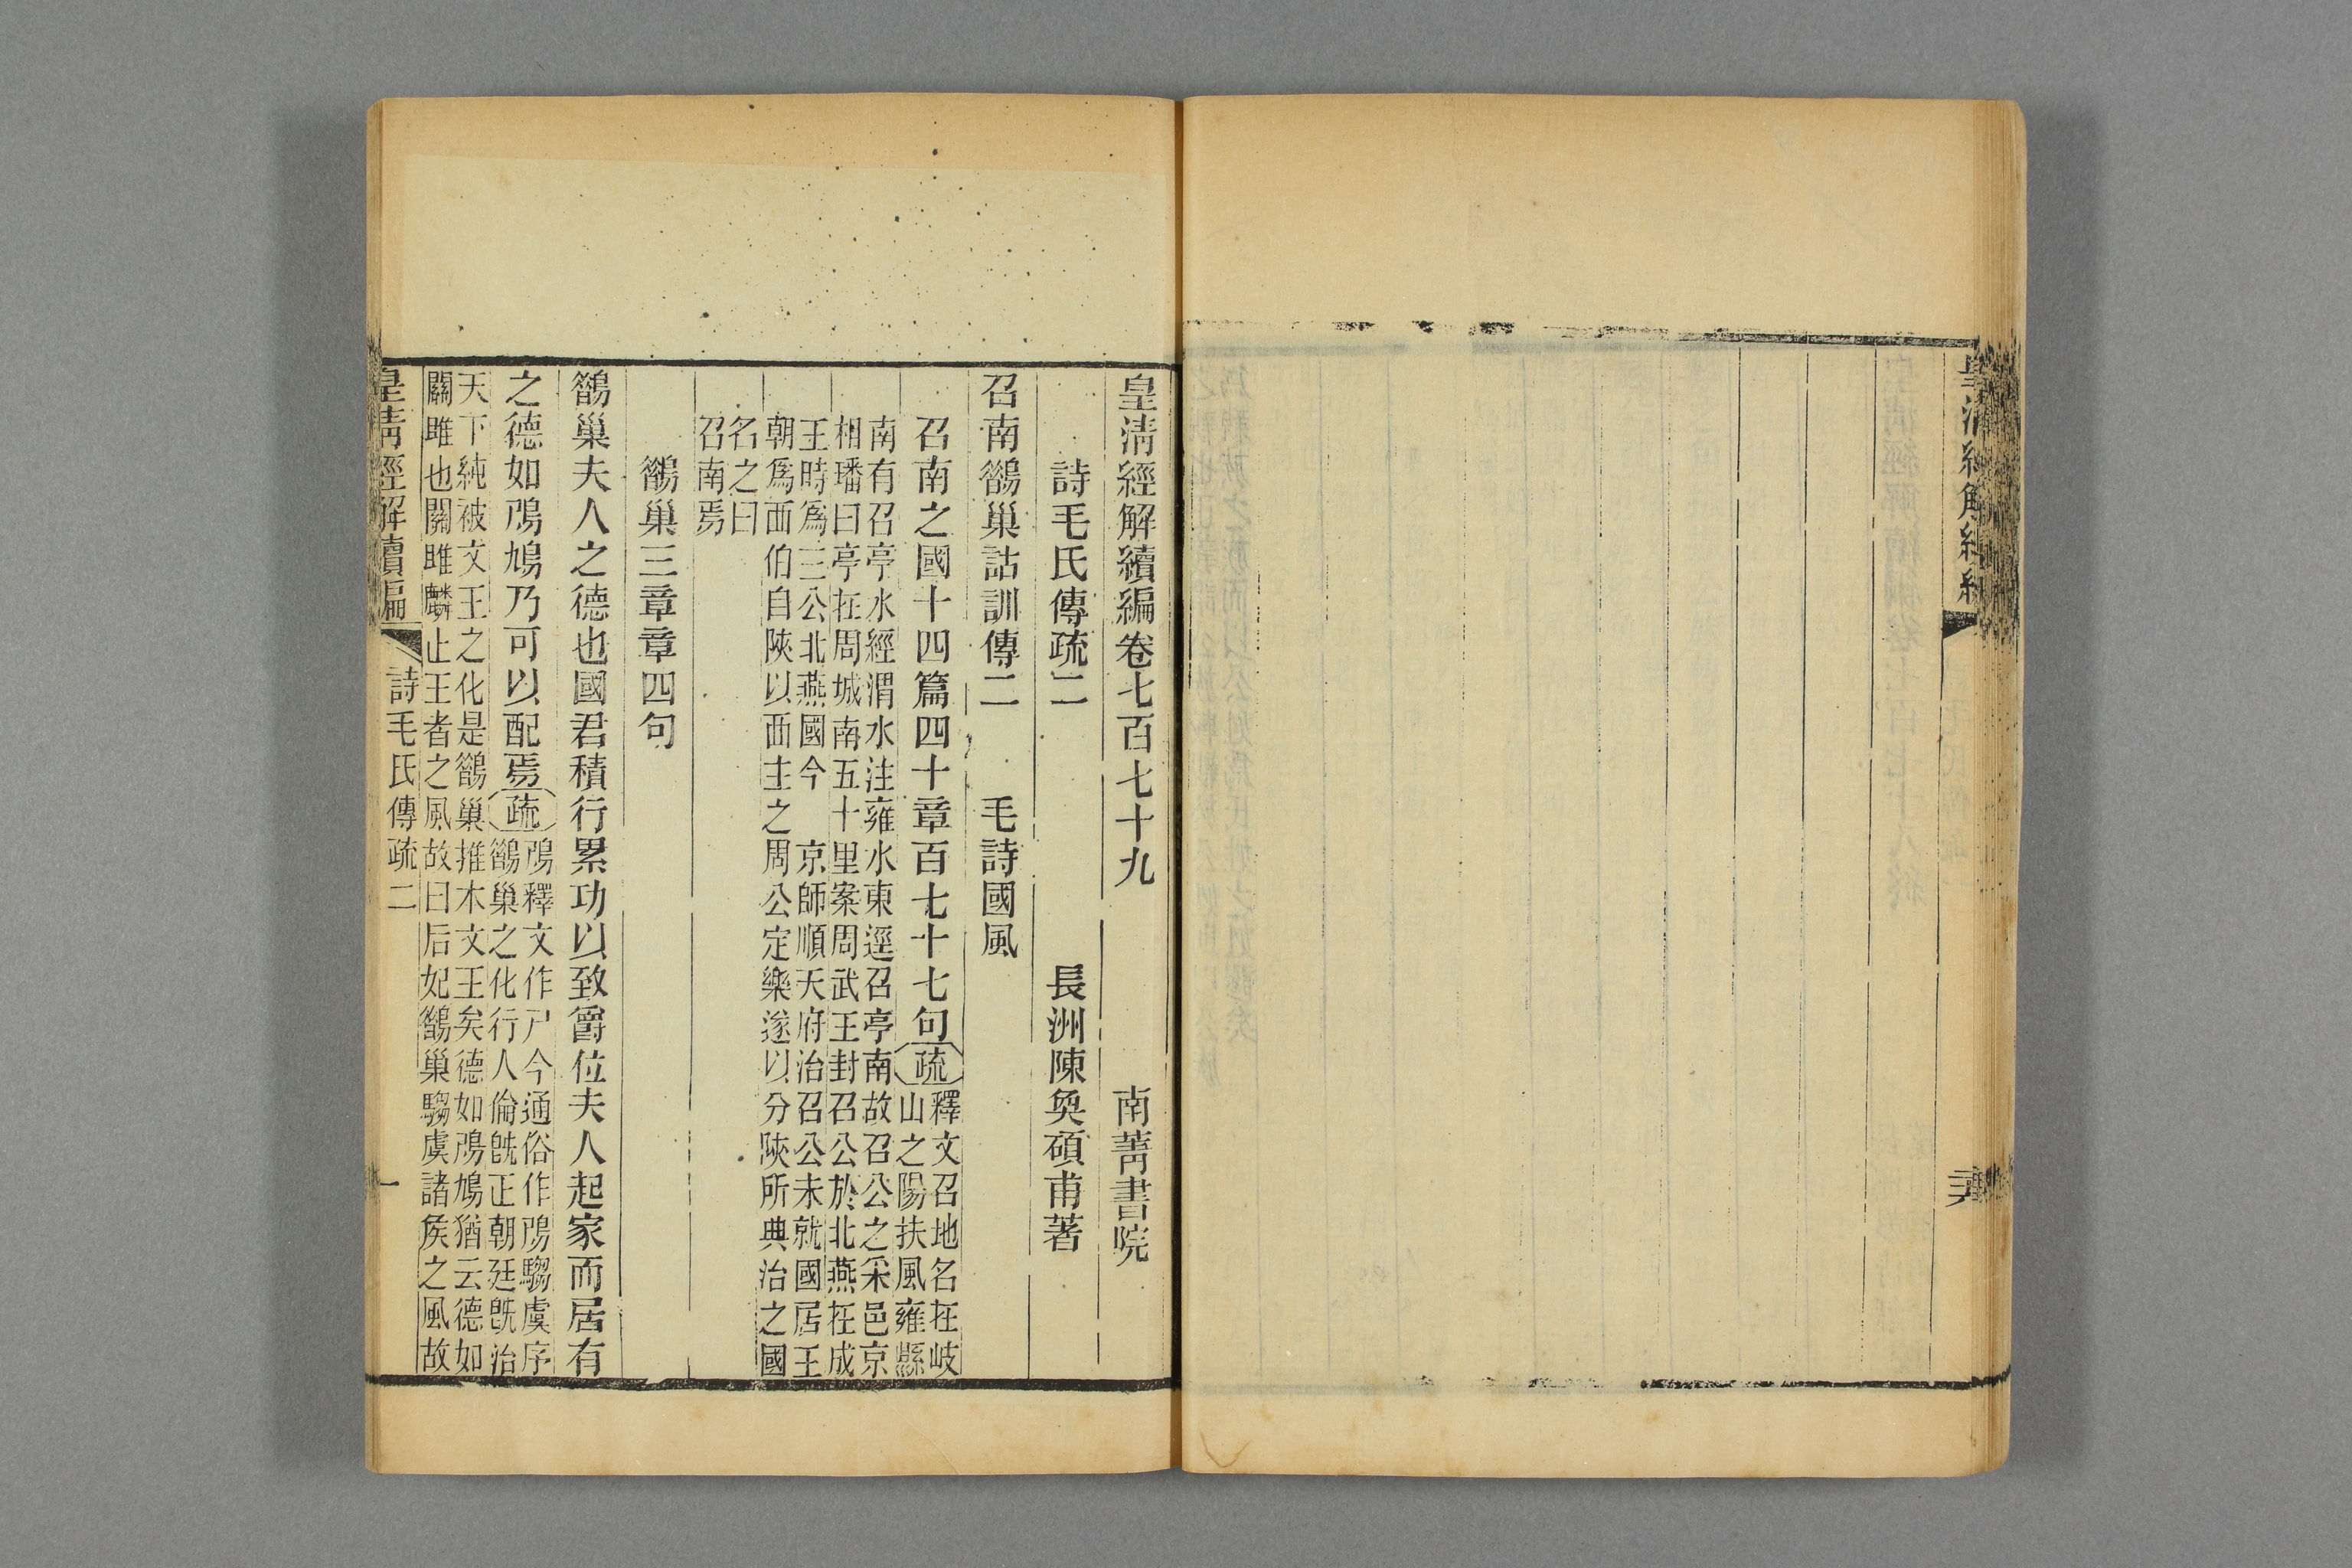 皇清經解續編
皇清經解續編卷七百七十九
南菁書院
詩毛氏傳疏二
長洲陳奐碩甫著
召南鵲巢詁訓傳二
毛詩國風
召南之國十四篇四十章百七十七句疏
釋文召地名在岐
山之陽扶風雍縣
南有召亭水經渭水注雍水東逕召亭南故召公之采邑京
相璠曰亭在周城南五十里案周武王封召公於北燕在成
王時爲三公北燕國今
京師順天府治召公未就國居王
朝爲西伯自陝以西主之周公定樂遂以分陝所典治之國
名之曰
召南焉
鵲巢三章章四句
鵲巢夫人之德也國君積行累功以致爵位夫人起家而居有
之德如鳲鳩乃可以配焉疏
鳲釋文作尸今通俗作鳲騶虞序
鵲巢之化行人倫旣正朝廷旣治
天下純被文王之化是鵲巢推本文王矣德如鳲鳩猶云德如
關雎也關雎麟止王者之風故曰后妃鵲巢騶虞諸侯之風故
皇淸經解續編
詩毛氏傳疏二
一